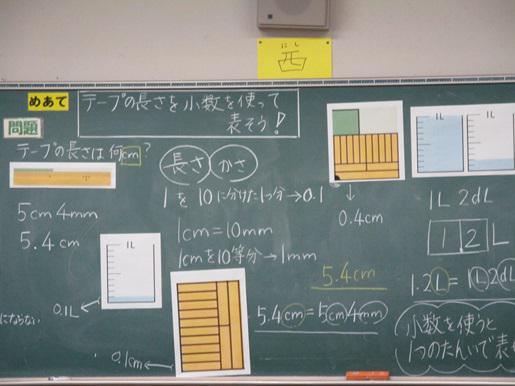 にし
西
めあて
テープの長さを小数を使って
表そう!
問題
テープの長さは何cm?
5cm4mm
5.4cm
1L
0.1L
にならない
0.1cm
長さ
かさ
1を10に分けた1つ分→0.1
1cm=10mm
1cmを10等分→1mm
5.4cm
5.4cm=5cm4mm
0.4cm
1L
1L
1L 2dL
1.2L
1.2L=1L2dL
小数を使うと
1つのたんいで表